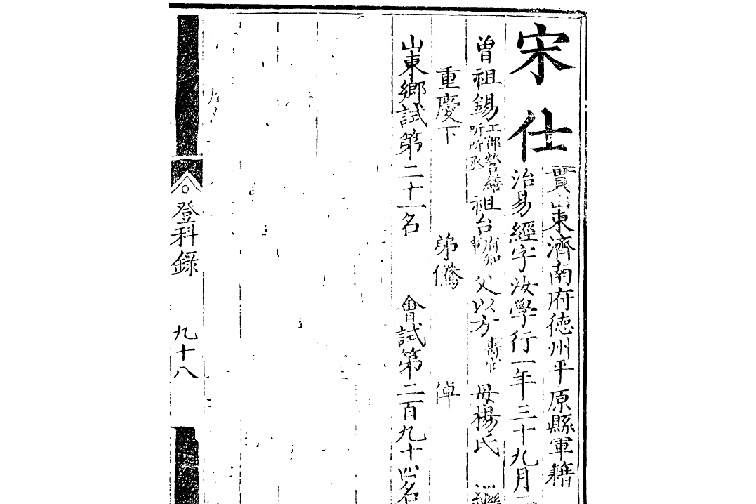 宋仕
貫山東濟南府德州平原縣軍籍
治易經字汝學行一年三十九月
曾祖錫工部營繕所所丞 祖台 父以方 母楊氏
重慶下 弟儒 倬
山東鄉試第二十一名 會試第二百九十四名
登科錄 九十八